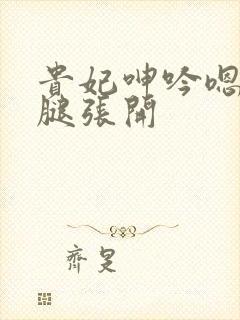 貴妃呻吟嗯
腿張開
齊旻